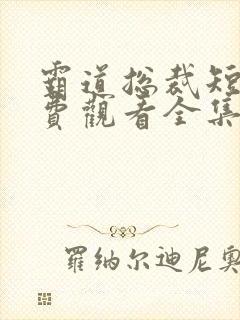 霸道总裁短
费观看全集
羅纳尔迪尼奥